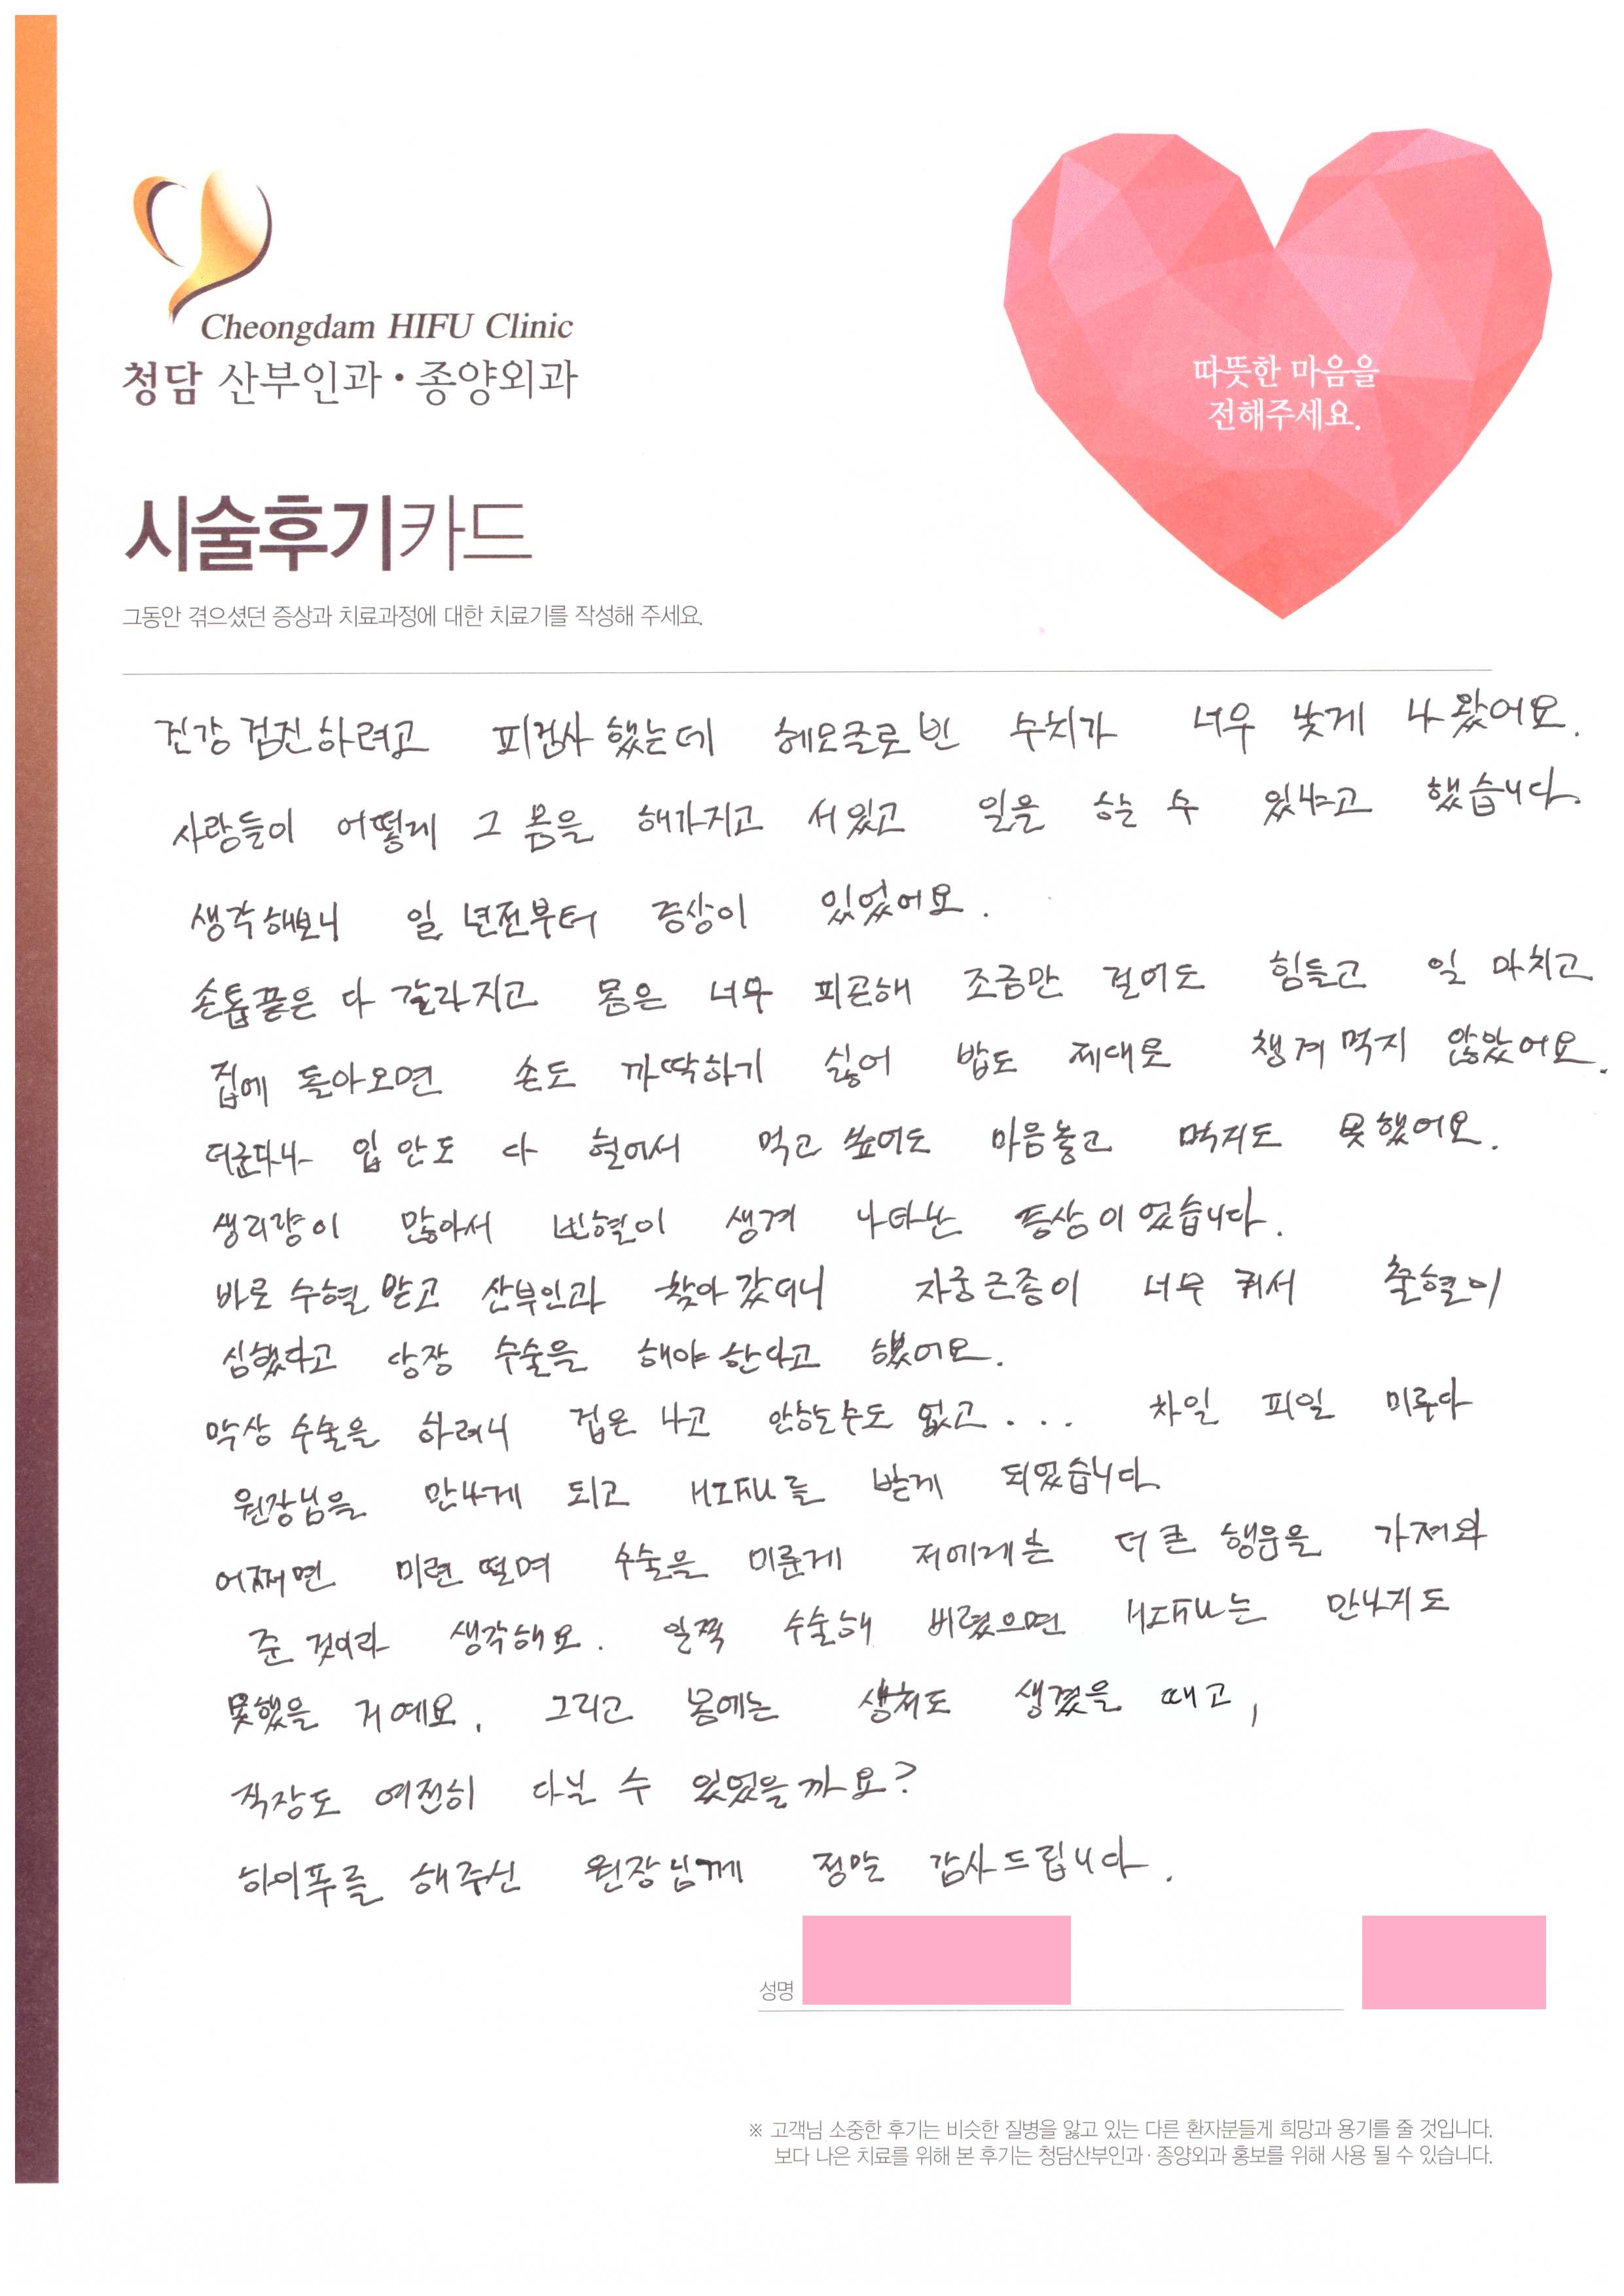 Cheongdam HIFU Clinic
청담 산부인과·종양외과
따뜻한 마음을
전해주세요.
시술후기카드
그동안 겪으셨던 증상과 치료과정에 대한 치료기를 작성해 주세요.
건강검진하려고 피검사 했는데 헤모글로빈 수치가 너무 낮게 나왔어요.
사람들이 어떻게 그 몸을 해가지고 서있고 일을 하는 수 있냐고 했습니다.
생각해보니 일 년전부터 증상이 있었어요.
손톱끝은 다 갈라지고 몸은 너무 피곤해 조금만 걸어도 힘들고 일 마치고
집에 돌아오면 손도 까딱하기 싫어 밥도 제대로 챙겨 먹지 않았어요.
더군다나 입 안도 다 헐어서 먹고 싶어도 마음놓고 먹지도 못했어요.
생리량이 많아서 빈혈이 생겨 나타난 증상이었습니다.
바로 수혈 받고 산부인과 찾아 갔더니 자궁근종이 너무 커서 출혈이
심했다고 당장 수술을 해야 한다고 했어요.
막상 수술을 하려니 겁은 나고 안하는수도 없고... 차일 피일 미루다
원장님을 만나게 되고 HIFU를 받게 되었습니다
어쩌면 미련 떨며 수술을 미룬게 저에게는 더 큰 행운을 가져와
준 것이라 생각해요. 일찍 수술해 버렸으면 HIFU는 만나지도
못했을 거예요. 그리고 몸에는 상처도 생겼을 때고,
직장도 여전히 다닐 수 있었을까요?
하이푸를 해주신 원장님께 정말 감사드립니다.
성명
※ 고객님 소중한 후기는 비슷한 질병을 앓고 있는 다른 환자분들게 희망과 용기를 줄 것입니다.
보다 나은 치료를 위해 본 후기는 청담산부인과·종양외과 홍보를 위해 사용 될 수 있습니다.